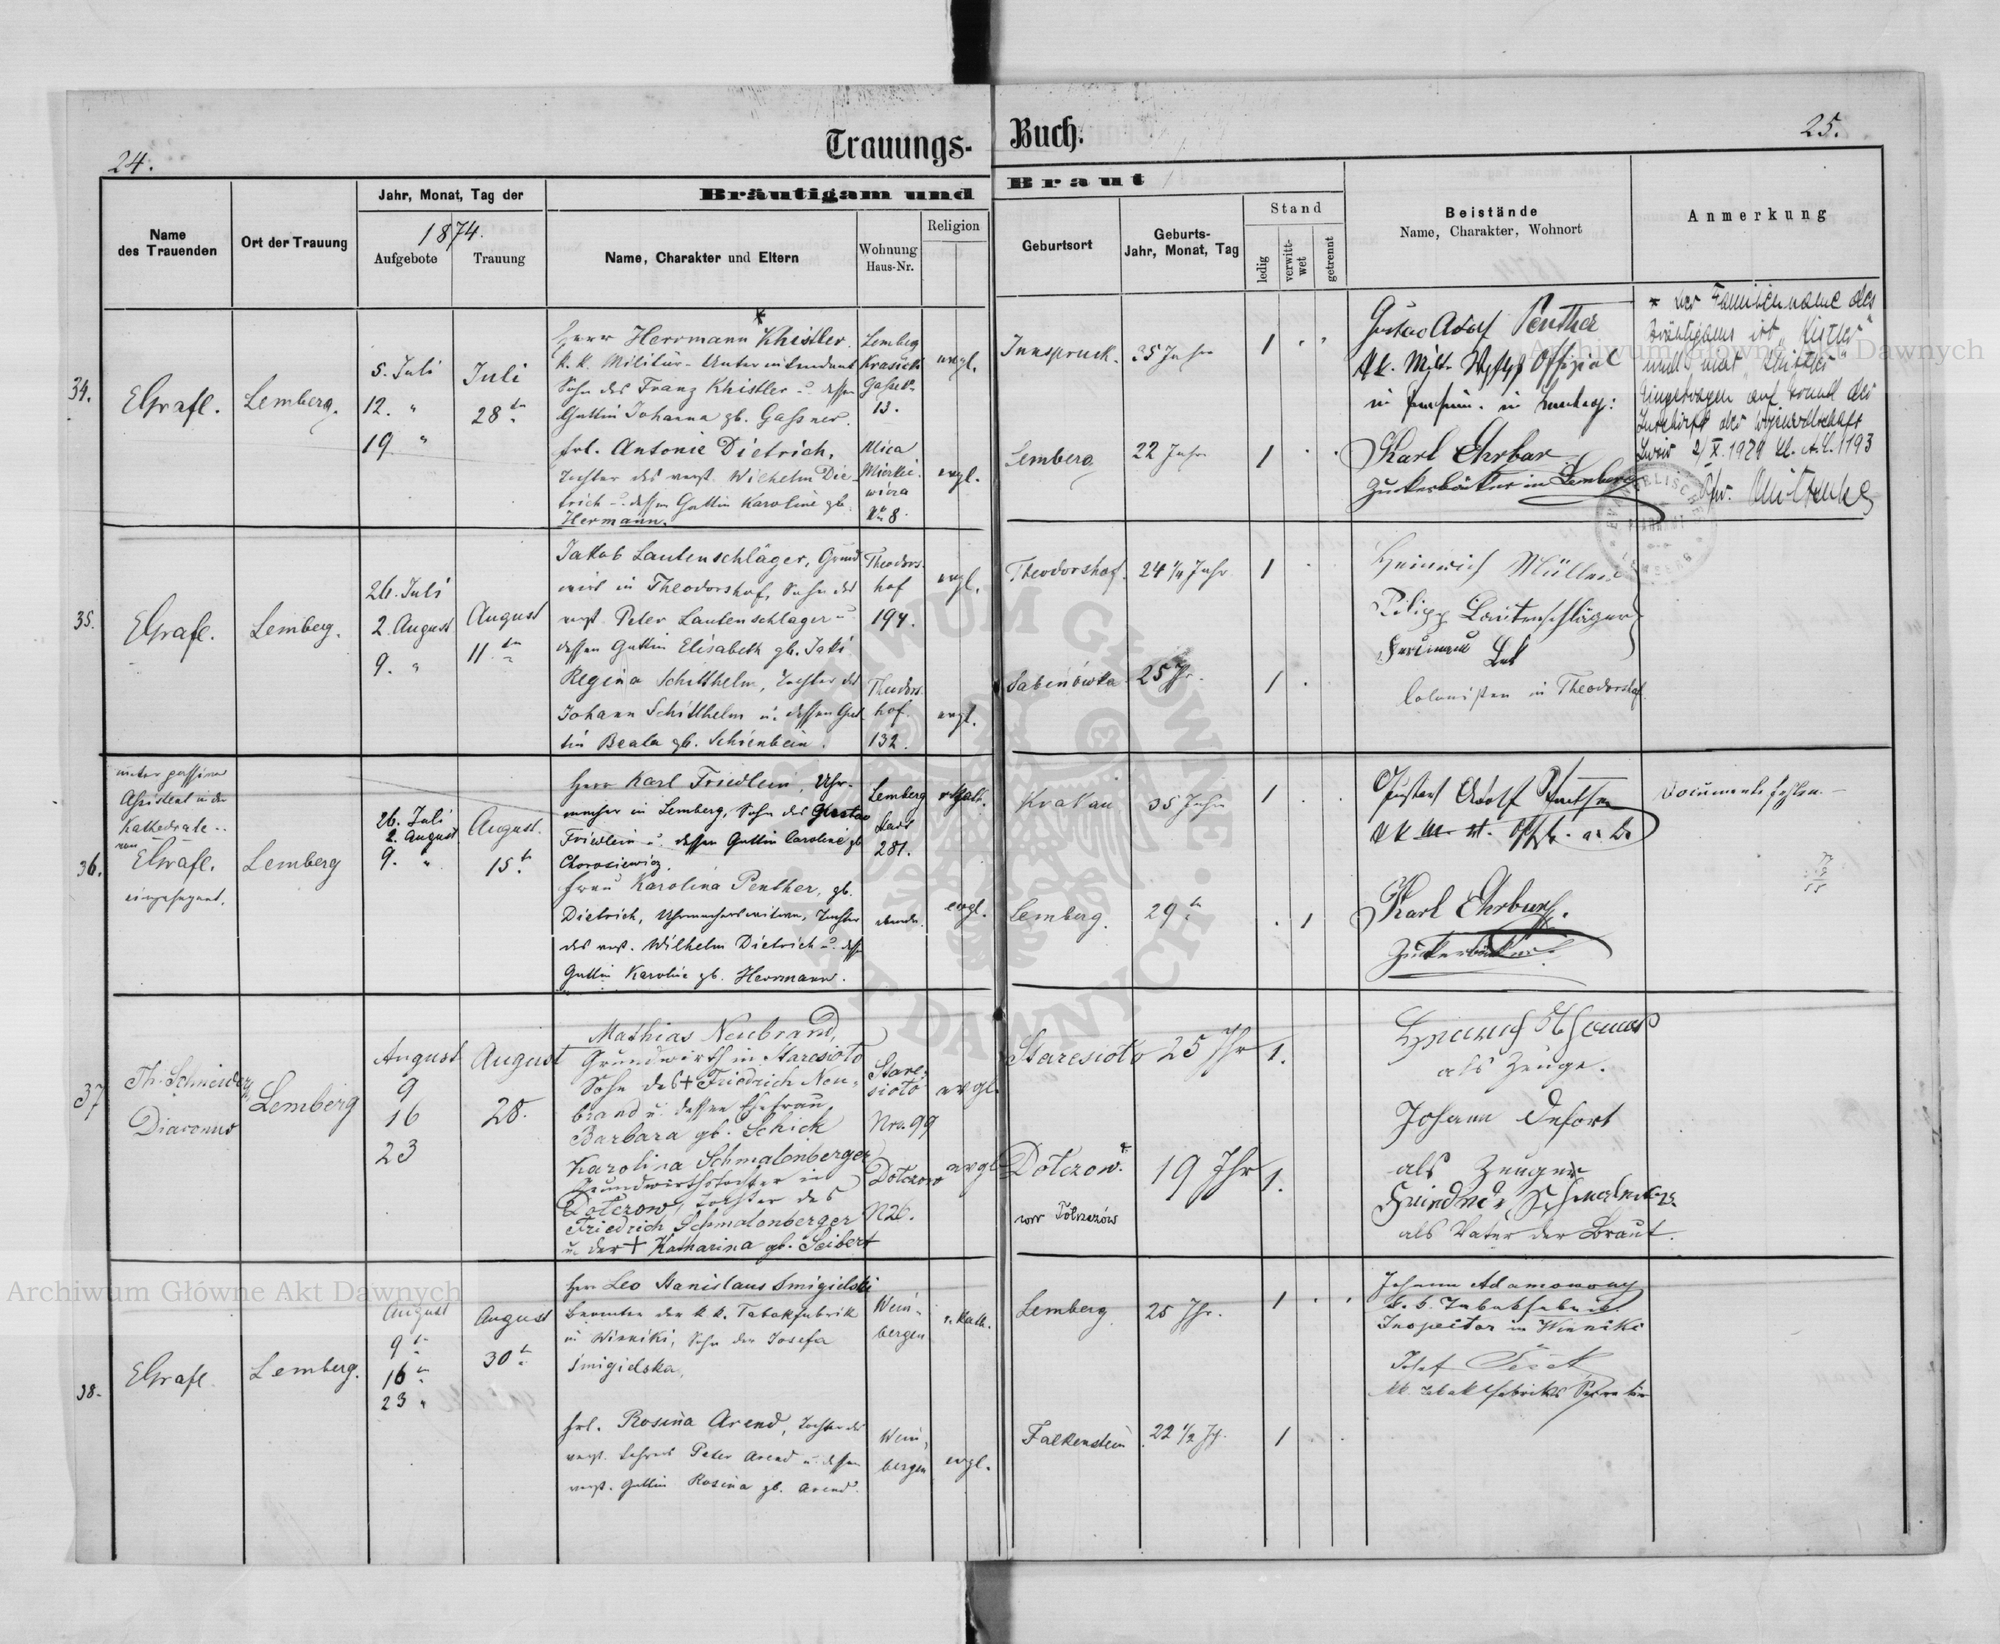 24.
Trauungs-
Buch.
25.
Name
des Trauenden
Ort der Trauung
Jahr, Monat, Tag der
1874.
Aufgebote
Trauung
Bräutigam und
Braut
Name, Charakter und Eltern
Wohnung
Haus-Nr.
Religion
Geburtsort
Geburts-
Jahr, Monat, Tag
Stand
ledig
verwitt-
wet
getrennt
Beistände
Name, Charakter, Wohnort
Anmerkung
34.
EGrafl.
Lemberg.
5. Juli
12. "
19 "
Juli
28
*
Herr Herrmann Khistler.
k. k. Militür-Unterintendant
Sohn des Franz Khistler u. dessen
Gattin Johanna gb. Gaßner.
Lemberg
13.
evgl.
Innspruck.
35 Jahre
1
Gustav Adolf Penther
frl. Antonie Dietrich,
Tochter des verst. Wilhelm Die-
trich u. dessen Gattin Karoline gb.
Hermann.
8.
evgl.
Lemberg
22 Jahre
1
Karl Ehrbar
Zuckerbäcker in Lemberg
* der Familienname des
Bräutigams ist "Kistler"
und nicht "Khistler"
Eingetragen auf Grund der
Zuschrift der Wojewodschaft
35.
EGrafl.
Lemberg.
26. Juli
2. August
9. "
August
11
Jakob Lautenschläger, Grund
wirt in Theodorshof, Sohn des
verst. Peter Lautenschlager u.
dessen Gattin Elisabeth gb. Jaki.
Theodors-
hof
194.
evgl.
Theodorshof.
24 1/4 Jahr
1
Heinrich Müller
Pilipp Lautenschläger
Regina Schitthelm, Tochter des
Johann Schitthelm u. dessen Gat
tin Beata gb. Schienbein.
Theodors-
hof.
132.
evgl.
Sabinówka
25 Jr.
1
Colonisten in Theodorshof.
36.
unter passiver
Assistent in der
Kathedrale
von
EGrafl.
eingesegnet.
Lemberg
26. Juli
2. August
9. "
August.
15
Herr Karl Friedlein, Uhr-
macher in Lemberg, Sohn des Gustav
Friedlein u. dessen Gattin Caroline gb
Chorosiewicz
Lemberg
Stadt
281.
Krakau
35 Jahre
1
Documente fehlen.
Frau Karolina Penther, gb.
Dietrich, Uhrmacherswitwe, Tochter
des verst. Wilhelm Dietrich u. dess
Gattin Karoline gb. Herrmann.
evgl.
Lemberg.
29
1
Karl Ehrbar
Zuckerbäcker
37
Th. Schneider,
Diaconus
Lemberg
August
9
16
23
August
28.
Mathias Neubrand,
Grundwirth in Staresioto
Sohn des + Friedrich Neu-
brand u. dessen Ehefrau
Barbara gb. Schick
Stare-
sioto
Nro. 99
evgl.
Staresioto
25 Jhr
1.
als Zeuge.
Johann Defort
als Zeuge
Karolina Schmalenberger
Grundwirthstochter in
Dotczow, Tochter des
Friedrich Schmalenberger
u. der + Katharina gb. Seibert
Dotczow
N 26.
evgl
Dotczow.
19 Jhr
1.
als Vater der Braut.
38.
EGrafl
Lemberg.
August
9
16
23 "
August
30
Herr Leo Stanislaus Smigielski
Beamter der k. k. Tabakfabrik
in Winniki, Sohn der Josefa
Smigielska,
Wein-
bergen
r. kath.
Lemberg
25 Jhr.
1
Johann Adamowsky
k. k. Tabakfabrik.
Inspektor in Winniki
Josef
frl. Rosina Arend, Tochter des
verst. Lehrers Peter Arend u. dessen
verst. Gattin Rosina gb. Arend.
Wein-
bergen
evgl.
Falkenstein
22 1/2 Jh.
1
Archiwum Główne Akt Dawnych
Archiwum Główne Akt Dawnych
ARCHIWUM GŁÓWNE AKT DAWNYCH